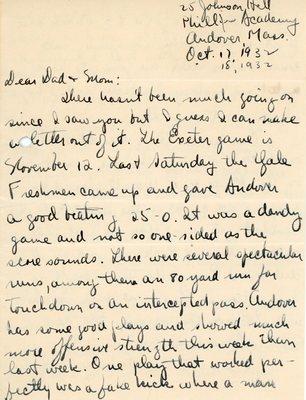 25 Johnson Hall
Phillips Academy
Andover, Mass.
Oct. 17, 1932
18, 1932
Dear Dad & Mom:
There hasn't been much going on
since I saw you but I guess I can make
a letter out of it. The Exeter game is
November 12. Last Saturday the Yale
Freshmen came up and gave Andover
a good beating 25-0. It was a dandy
game and not so one-sided as the
score sounds. There were several spectacular
runs, among them an 80 yard run for
touchdown on an intercepted pass. Andover
has some good plays and showed much
more offensive strength this week than
last week. One play that worked per-
fectly was a fake kick where a man